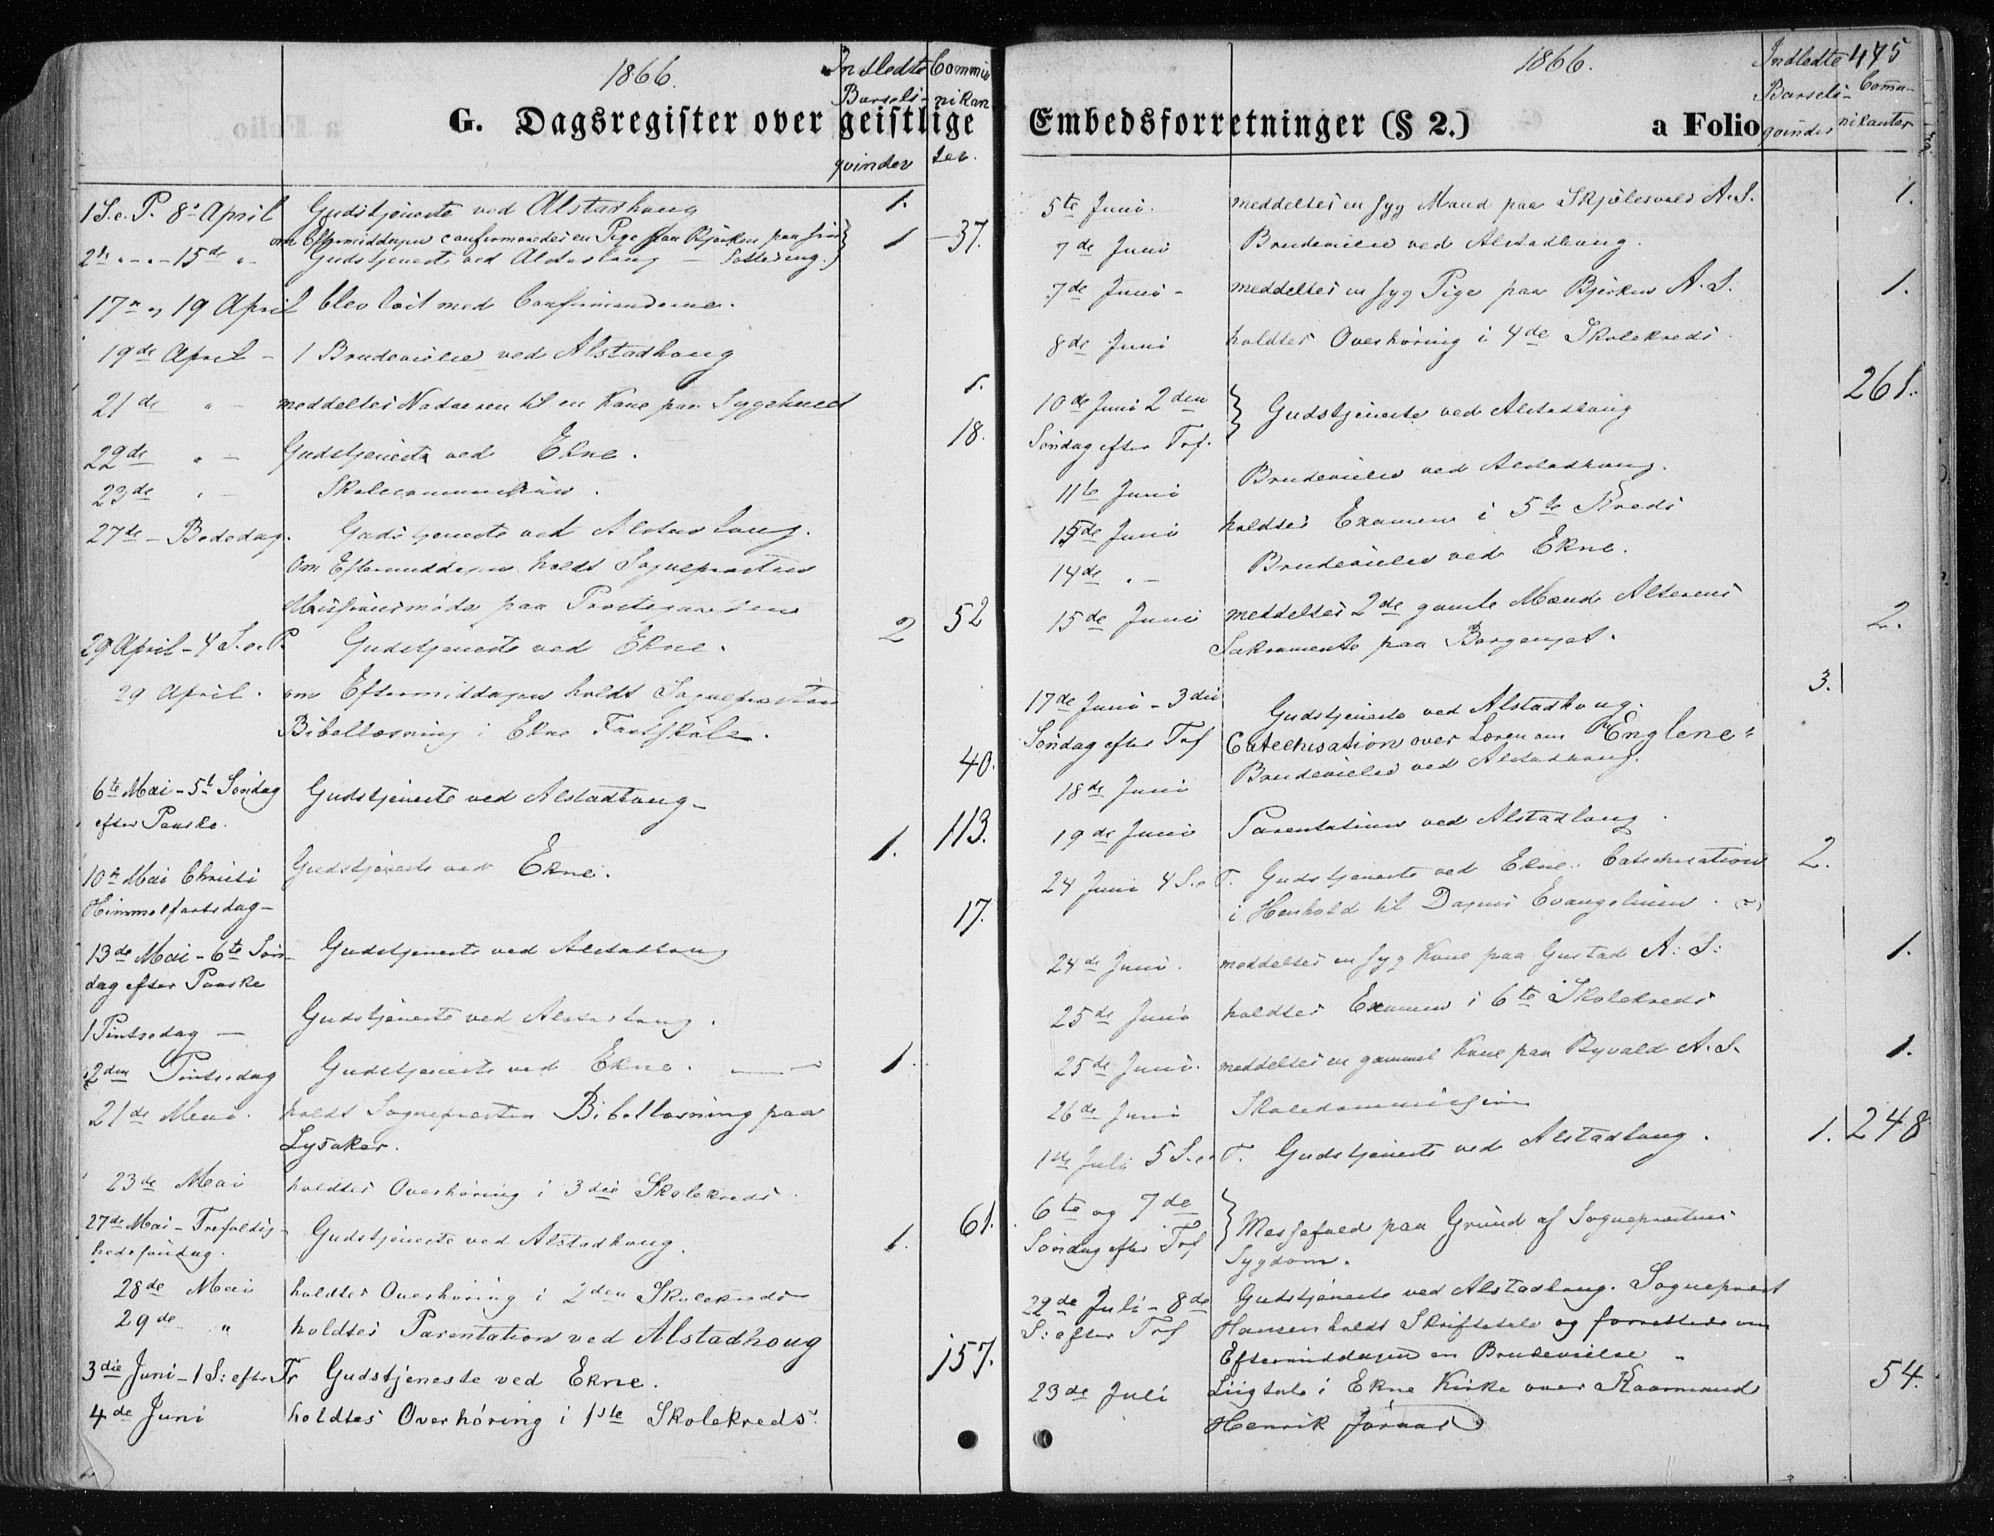 1866.
Indledte Barsels-
qvinder
Commu
nikan
ter.
G. Dagsregister over geistlige
1 S. e. P. 8de April Gudstjeneste ved Alstadhoug 1.
om Eftermiddagen confirmeredes en Pige fra Bjerken paa sin
2den " - " - 15de " - Gudstjeneste ved Alstadhoug - Sotteseng. } 1 - 37.
17de og 19 April blev læst med Confirmanderne.
19de April - 1 Brudevielse ved Alstadhoug
21de " - meddeltes Nadveren til en Kone paa Sygehuset 1.
22de " - Gudstjeneste ved Ekne. 18.
23de " - Skolecommission.
27de - Bededag. Gudstjeneste ved Alstadhoug.
Om Eftermiddagen holdt Sognepresten
Missionsmøde paa Prestegaarden
29 April - 4 S. e. P. Gudstjeneste ved Ekne. 2 52
29 April. om Eftermiddagen holdt Sognepresten
Bibellæsning i Ekne Fastskole.
6te Mai - 5te Søndag Gudstjeneste ved Alstadhoug - 40.
efter Paaske.
10de Mai Christi Gudstjeneste ved Ekne. 1. 113.
Himmelfartsdag -
13de Mai - 6te Søn- Gudstjeneste ved Alstadhoug 17.
dag efter Paaske
1 Pintsedag - Gudstjeneste ved Alstadhoug.
2den Pintsedag Gudstjeneste ved Ekne. 1.
21de Mai. holdt Sognepresten Bibellæsning paa
Lysaker.
23de Mai holdtes Overhøring i 3die Skolekreds.
27de Mai - Trefoldig- Gudstjeneste ved Alstadhoug. 1. 61.
hedssøndag.
28de Mai holdtes Overhøring i 2den Skolekreds
29de " holdtes Parentation ved Alstadhoug
3die Juni - 1 S: efter Tr Gudstjeneste ved Ekne. 157.
4de Juni holdtes Overhøring i 1ste Skolekreds.
1866.
Indledte
Barsels-
qvinder
475
Commu-
nikanter
Embedsforretninger (§ 2.) a Folio
5te Juni. meddeltes en syg Mand paa Skjølesvold A. S. 1.
7de Juni Brudevielse ved Alstadhoug.
7de Juni - meddeltes en syg Pige paa Bjerken A. S. 1.
8de Juni holdtes Overhøring i 4de Skolekreds.
10de Juni 2den
Søndag efter Tref. } Gudstjeneste ved Alstadhoug 261.
11te Juni Brudevielse ved Alstadhoug.
13de Juni holdtes Examen i 5te Kreds
14de " - Brudevielse ved Ekne.
15de Juni meddeltes 2de gamle Mænd Alterens
Sakramente paa 2.
17de Juni - 3die Gudstjeneste ved Alstadhoug. 3.
Søndag efter Tref Catechisation over Læren om "Englene"
18de Juni Brudevielse ved Alstadhoug.
19de Juni Parentation ved Alstadhoug.
24 Juni 4 S. e. T. Gudstjeneste ved Ekne. Catechisation 2.
i Henhold til Dagens Evangelium.
24de Juni. meddeltes en syg Kone paa Gustad A: S: 1.
25de Juni holdtes Examen i 6te Skolekreds
25de Juni. meddeltes en gammel Kone paa Byvald A. S. 1.
26de Juni Skolecommission
1ste Juli 5 S. e. T. Gudstjeneste ved Alstadhoug. 1. 248
6te og 7de
Søndag efter Tref } Messefald paa Grund af Sogneprestens
Sygdom.
22de Juli - 8de Gudstjeneste ved Alstadhoug. Sogneprest
S: efter Tref Hansen holdt Skriftetale og forrettede om
Eftermiddagen en Brudevielse " 54.
23de Juli Liigtale i Ekne Kirke over Kaarmand
Henrik